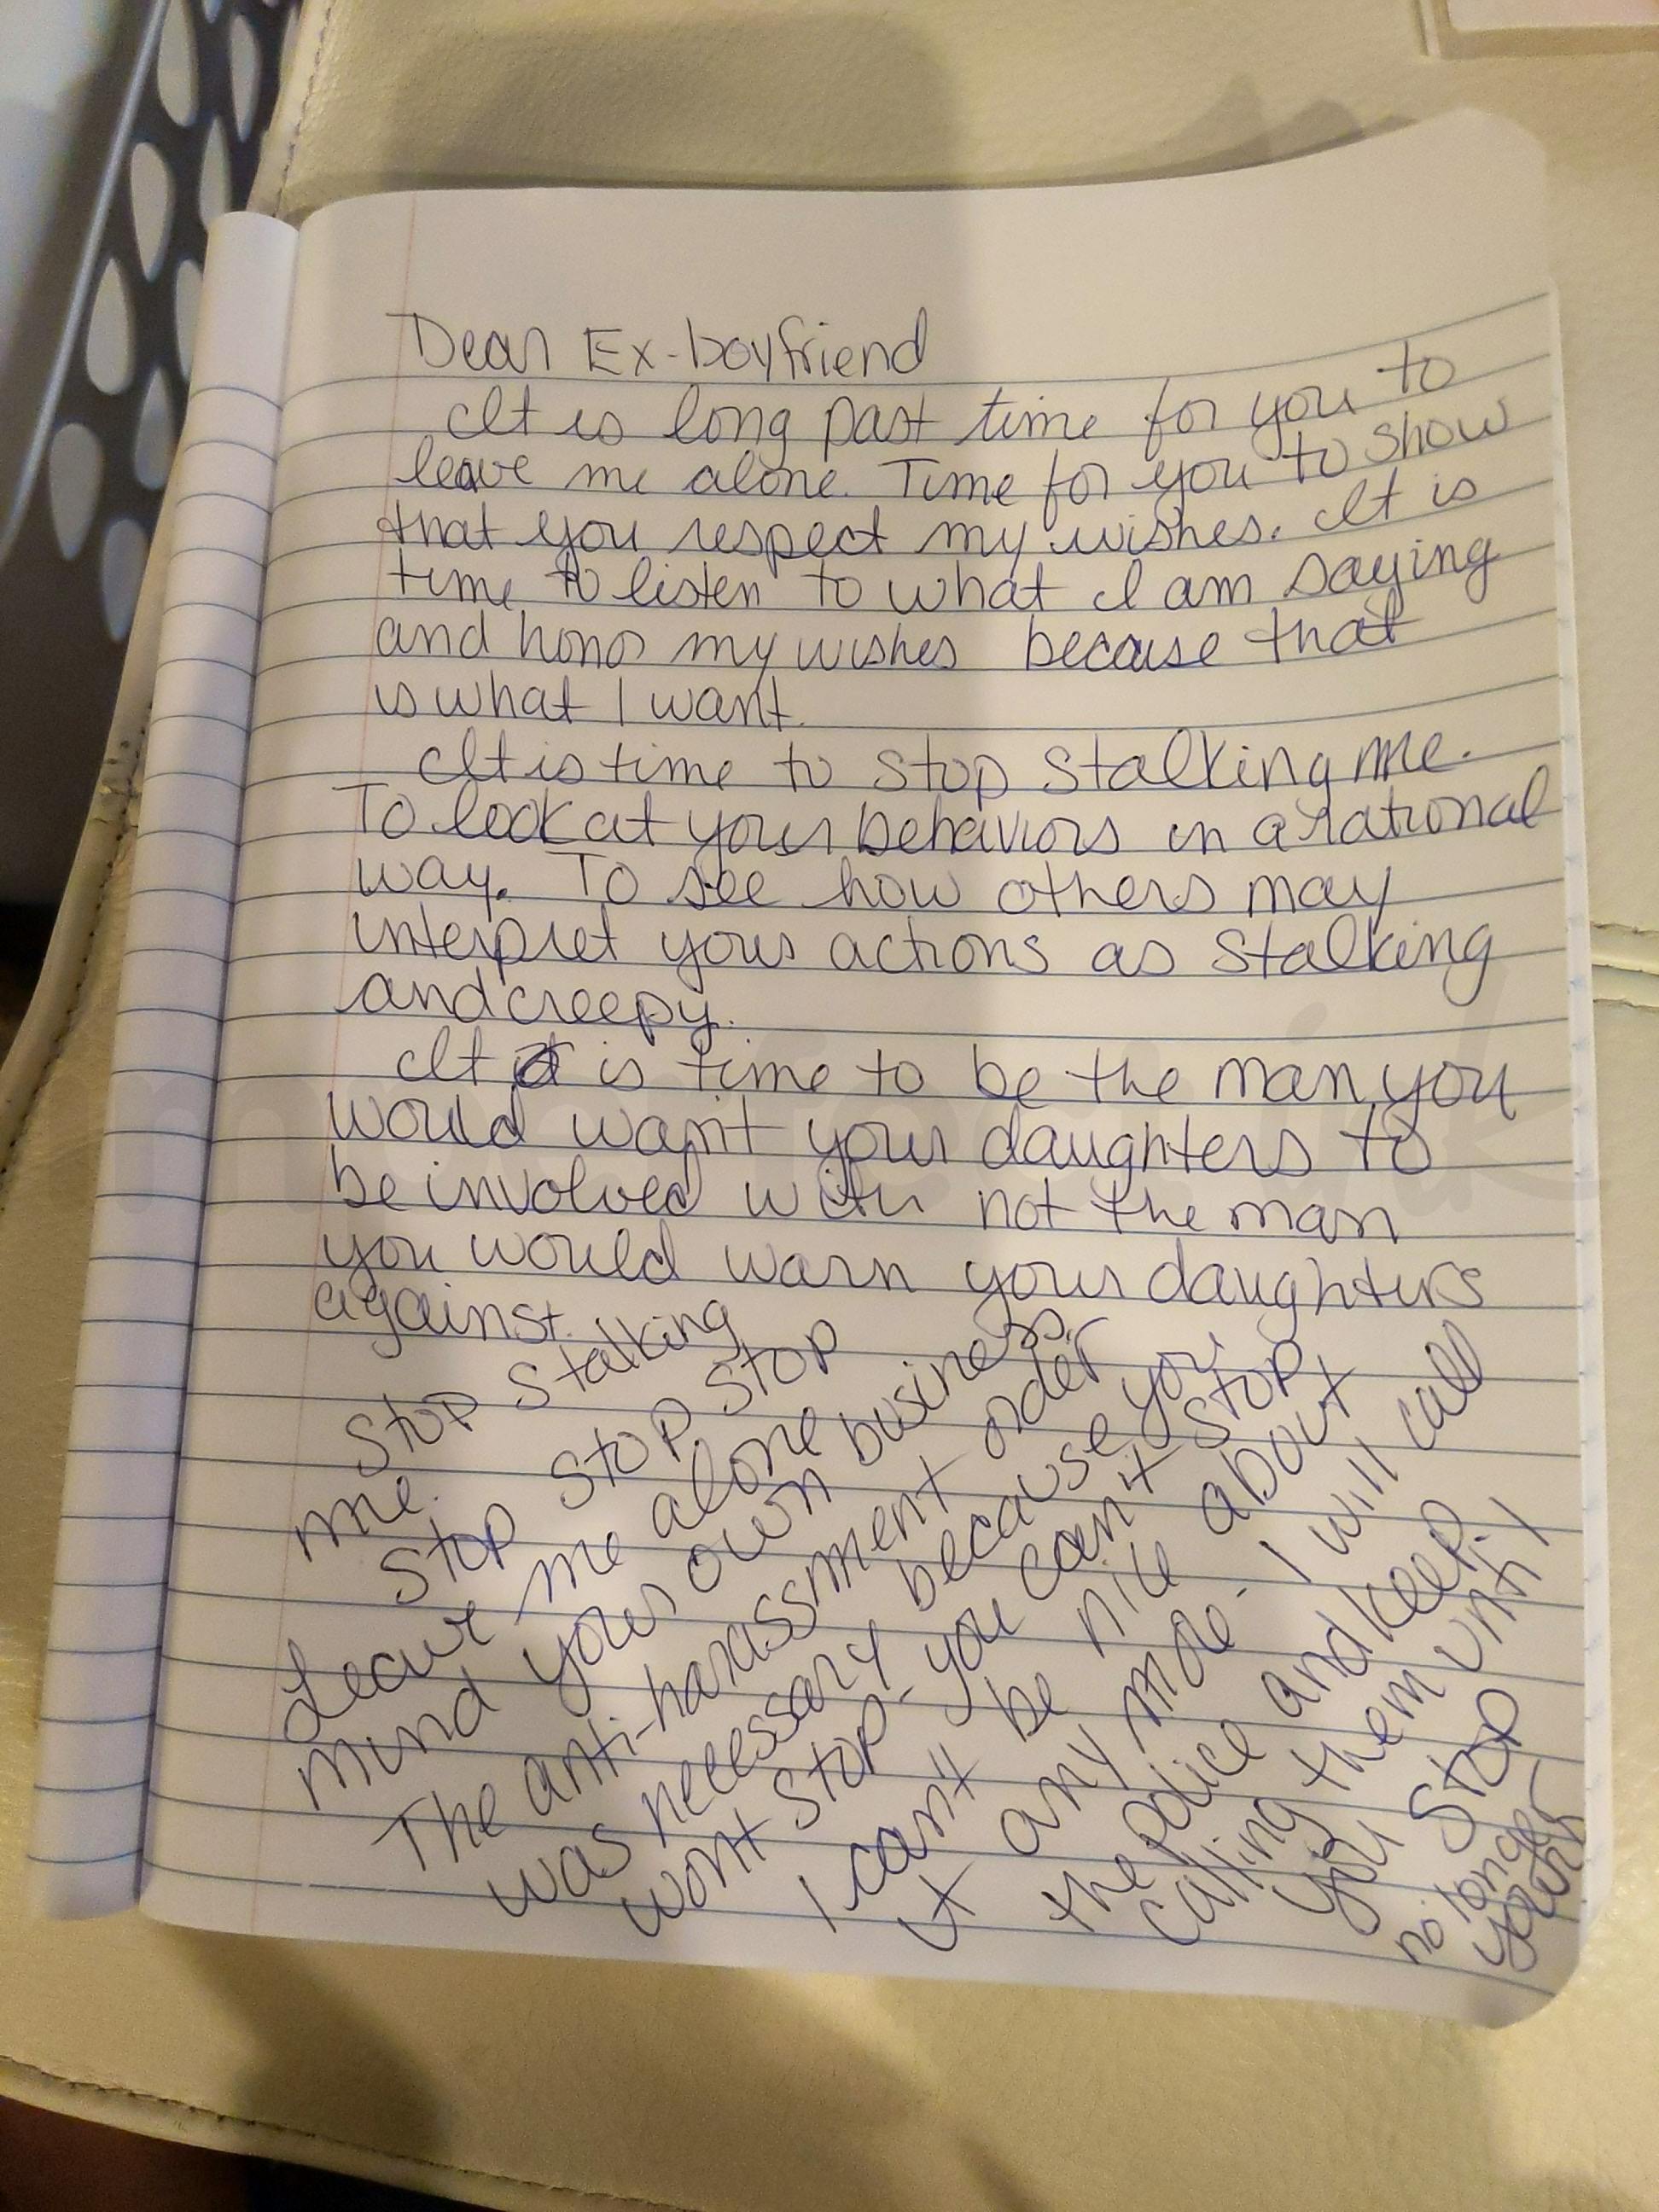 Dear Ex-boyfriend
It is long past time for you to
leave me alone. Time for you to show
that you respect my wishes. It is
time to listen to what I am saying
and honor my wishes because that
is what I want.
It is time to stop stalking me.
To look at your behaviors in a rational
way. To see how others may
interpret your actions as stalking
and creepy.
It is time to be the man you
would want your daughters to
be involved with not the man
you would warn your daughters
against.
Stop stalking
me.
Stop Stop Stop
Leave me alone
mind your own business.
The anti-harassment order
was necessary because you
wont stop - you can't stop
I can't be nice about
it any more - I will call
the police and keep
calling them until
you stop
no longer
yours